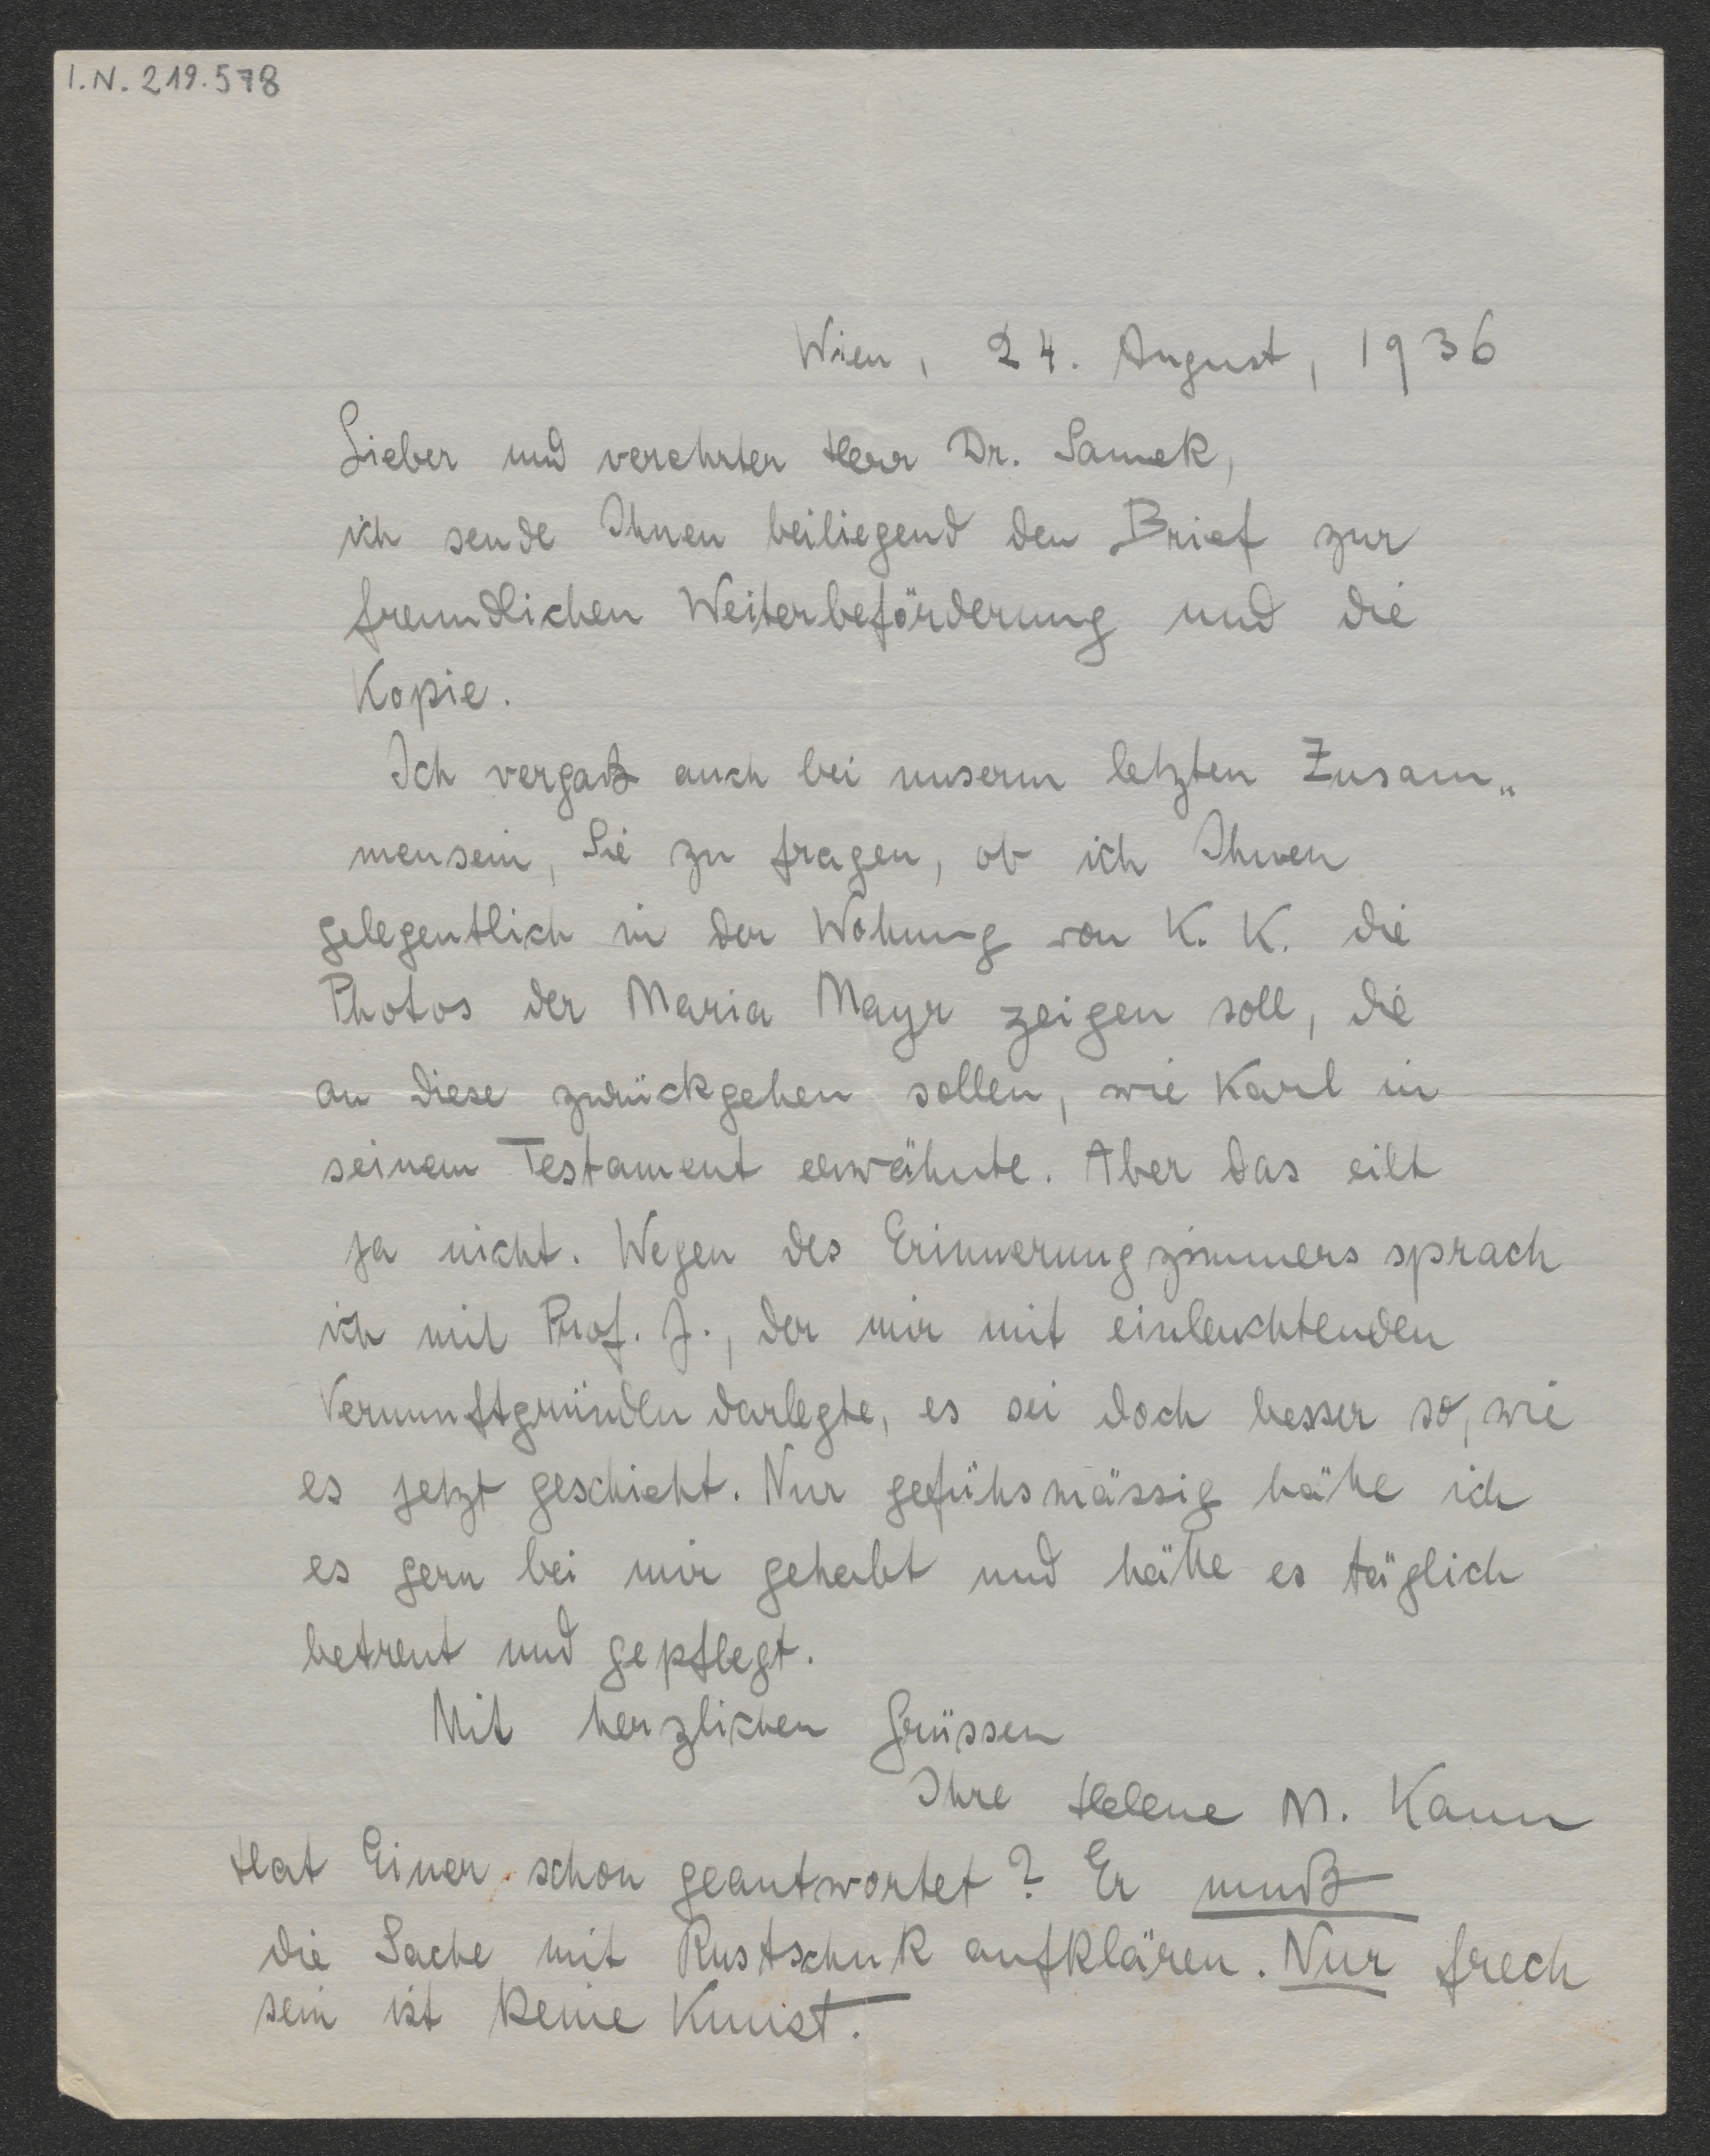 I.N. 219.578
Wien, 24. August, 1936
Lieber und verehrter Herr Dr. Samek,
ich sende Ihnen beiliegend den Brief zur
freundlichen Weiterbeförderung und die
Kopie.
Ich vergaß auch bei unserm letzten Zusam„
mensein, Sie zu fragen, ob ich Ihnen
gelegentlich in der Wohung von K. K. die
Photos der Maria Mayr zeigen soll, die
an diese zurückgehen sollen, wie Karl in
seinem Testament erwähnte. Aber das eilt
ja nicht. Wegen des Erinnerungzimmers sprach
ich mit Prof. J., der mir mit einleuchtenden
Vernunftgründen darlegte, es sei doch besser so, wie
es jetzt geschieht. Nur gefühsmässig hätte ich
es gern bei mir gehabt und hätte es täglich
betreut und gepflegt.
Mit herzlichen Grüssen
Ihre Helene M. Kann
Hat Einer schon geantwortet? Er muß
die Sache mit Rustschuk aufklären. Nur frech
sein ist keine Kunst.